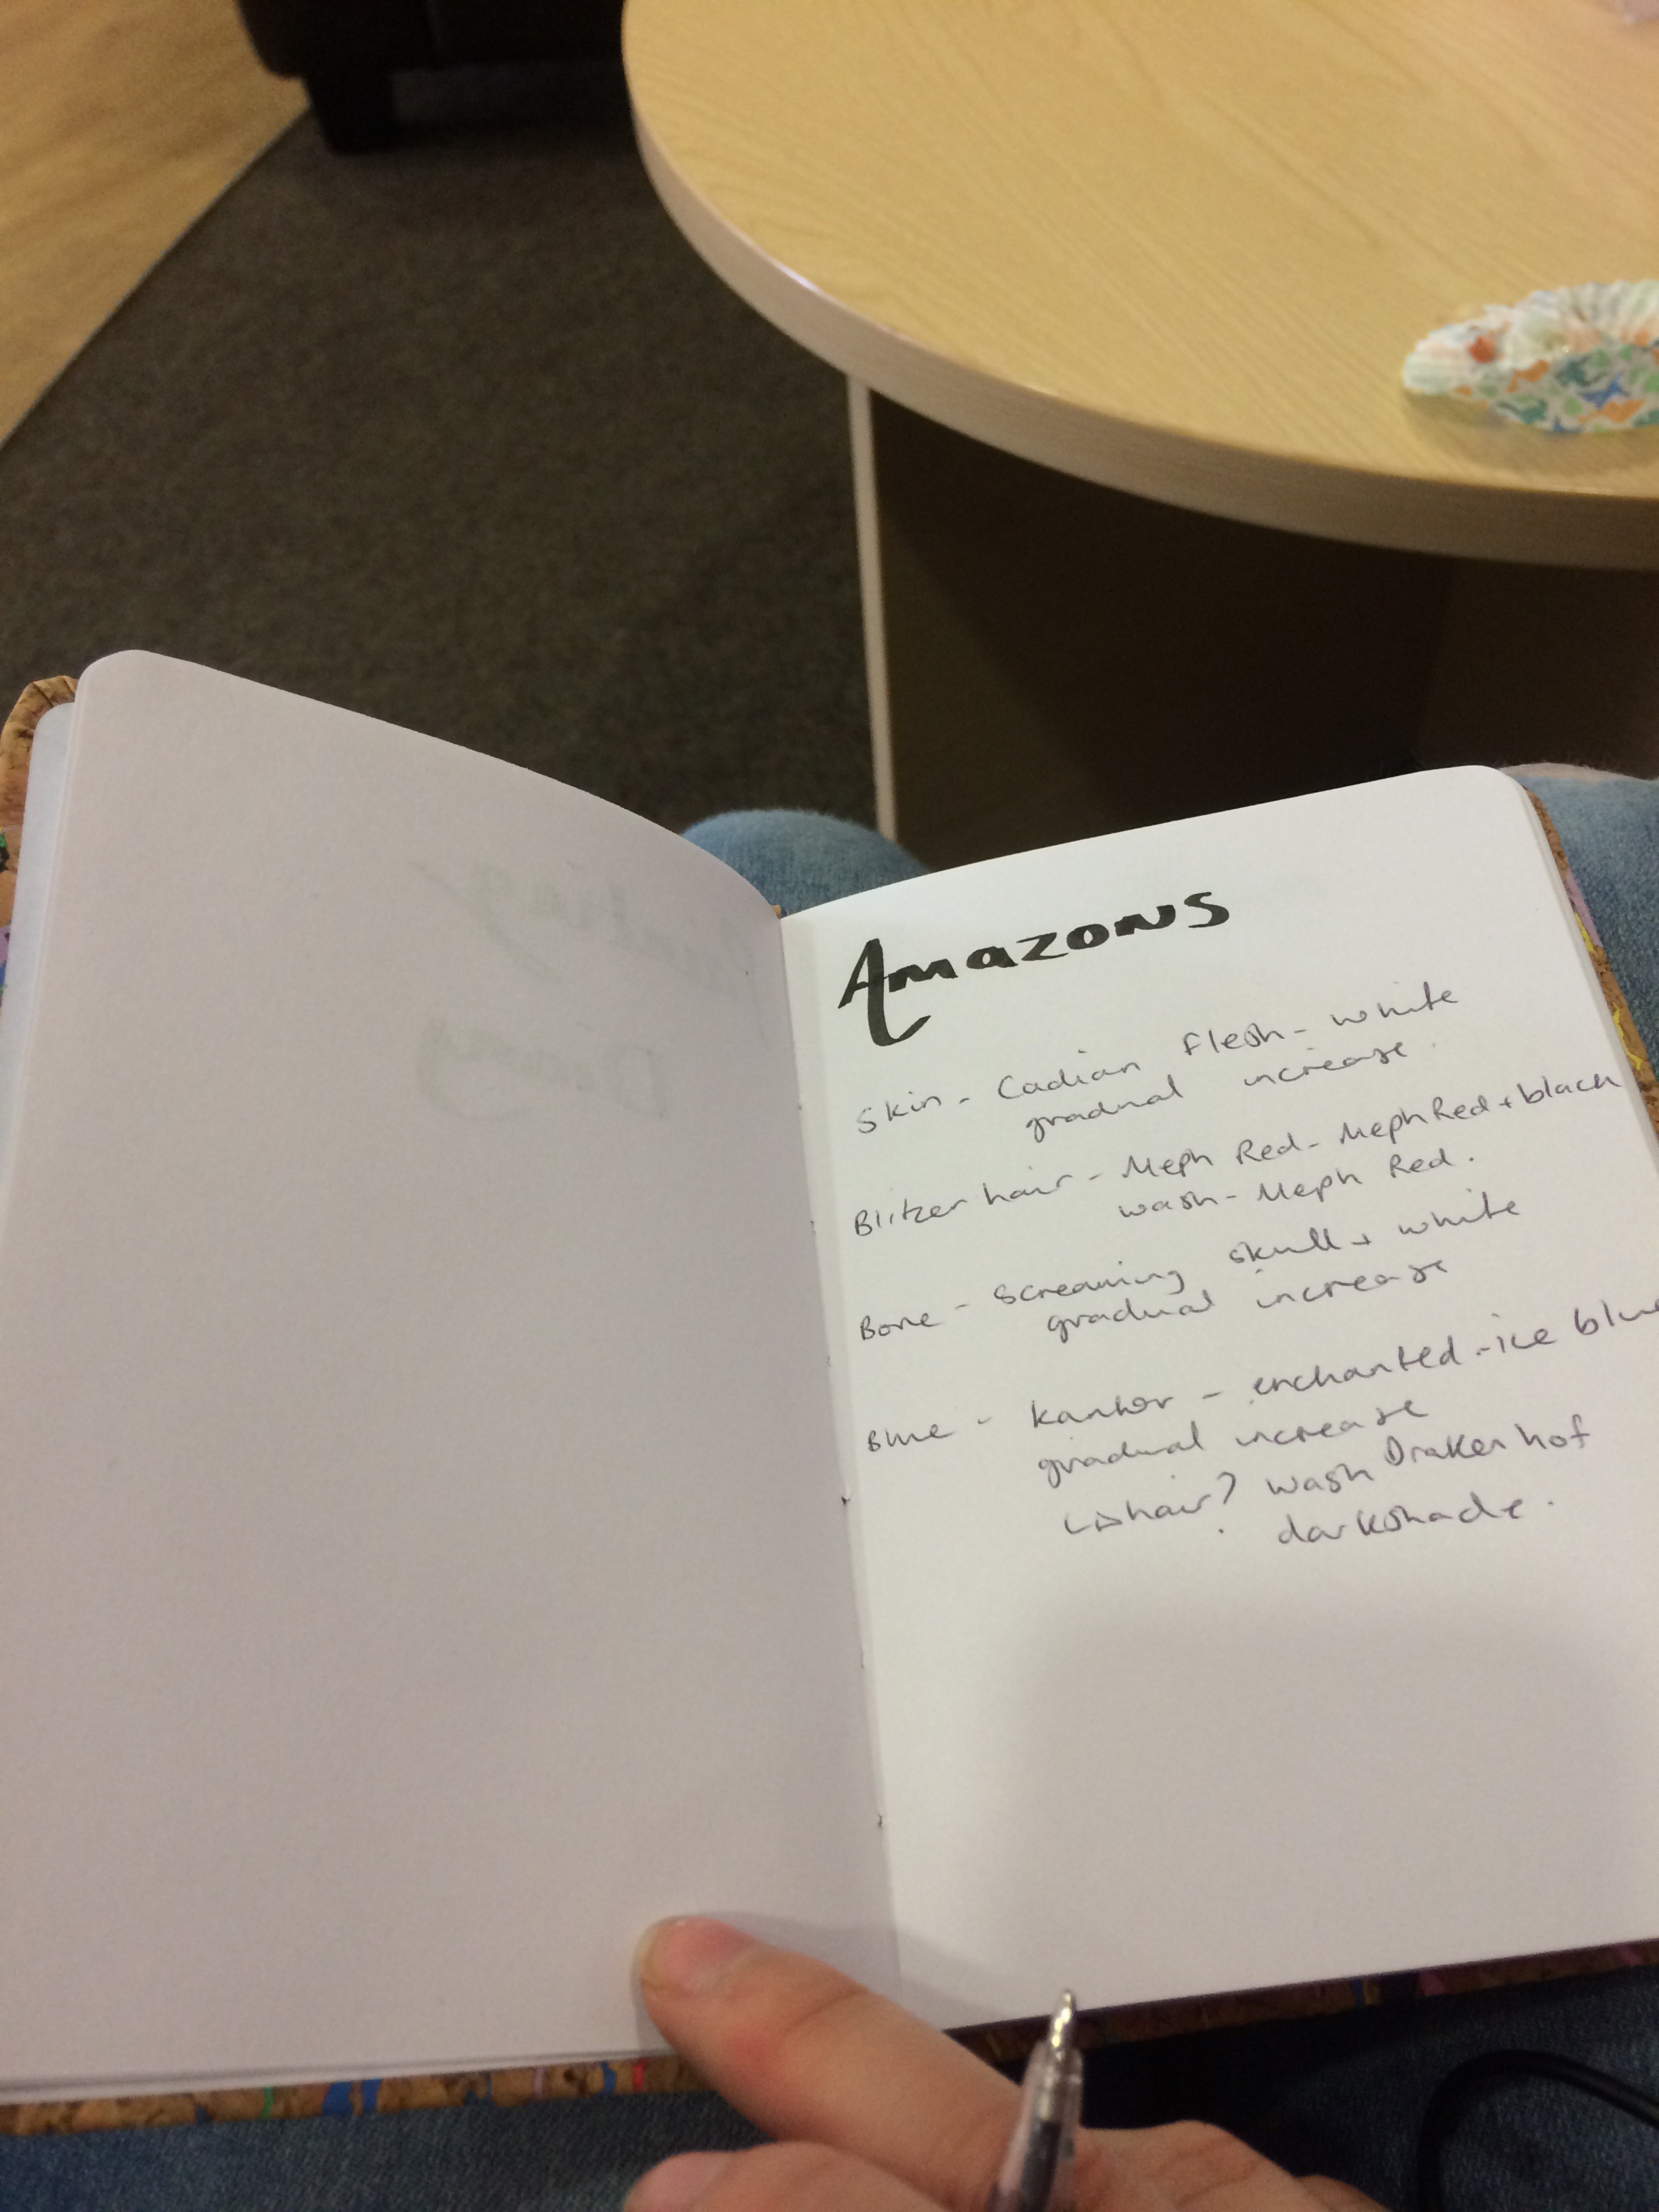 Amazons
Skin - Cadian Flesh - white
gradual increase.
Blitzer hair - Meph Red - Meph Red + black
wash - Meph Red.
Bone - Screaming skull + white
gradual increase
Blue - Kantor - enchanted - ice blue
gradual increase
hair? wash Drakenhof
darkshade.